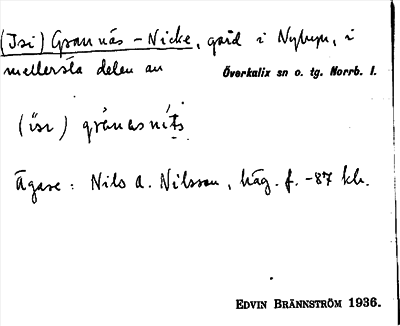 (Isi) Grannäs-Nicke, gård i Nybyn, i
mellersta delen av Överkalix sn o. tg. Norrb. l.
(isi) grànasnìts
Ägare: Nils A. Nilsson, häg. f. -87 kh.
EDVIN BRÄNNSTRÖM 1936.